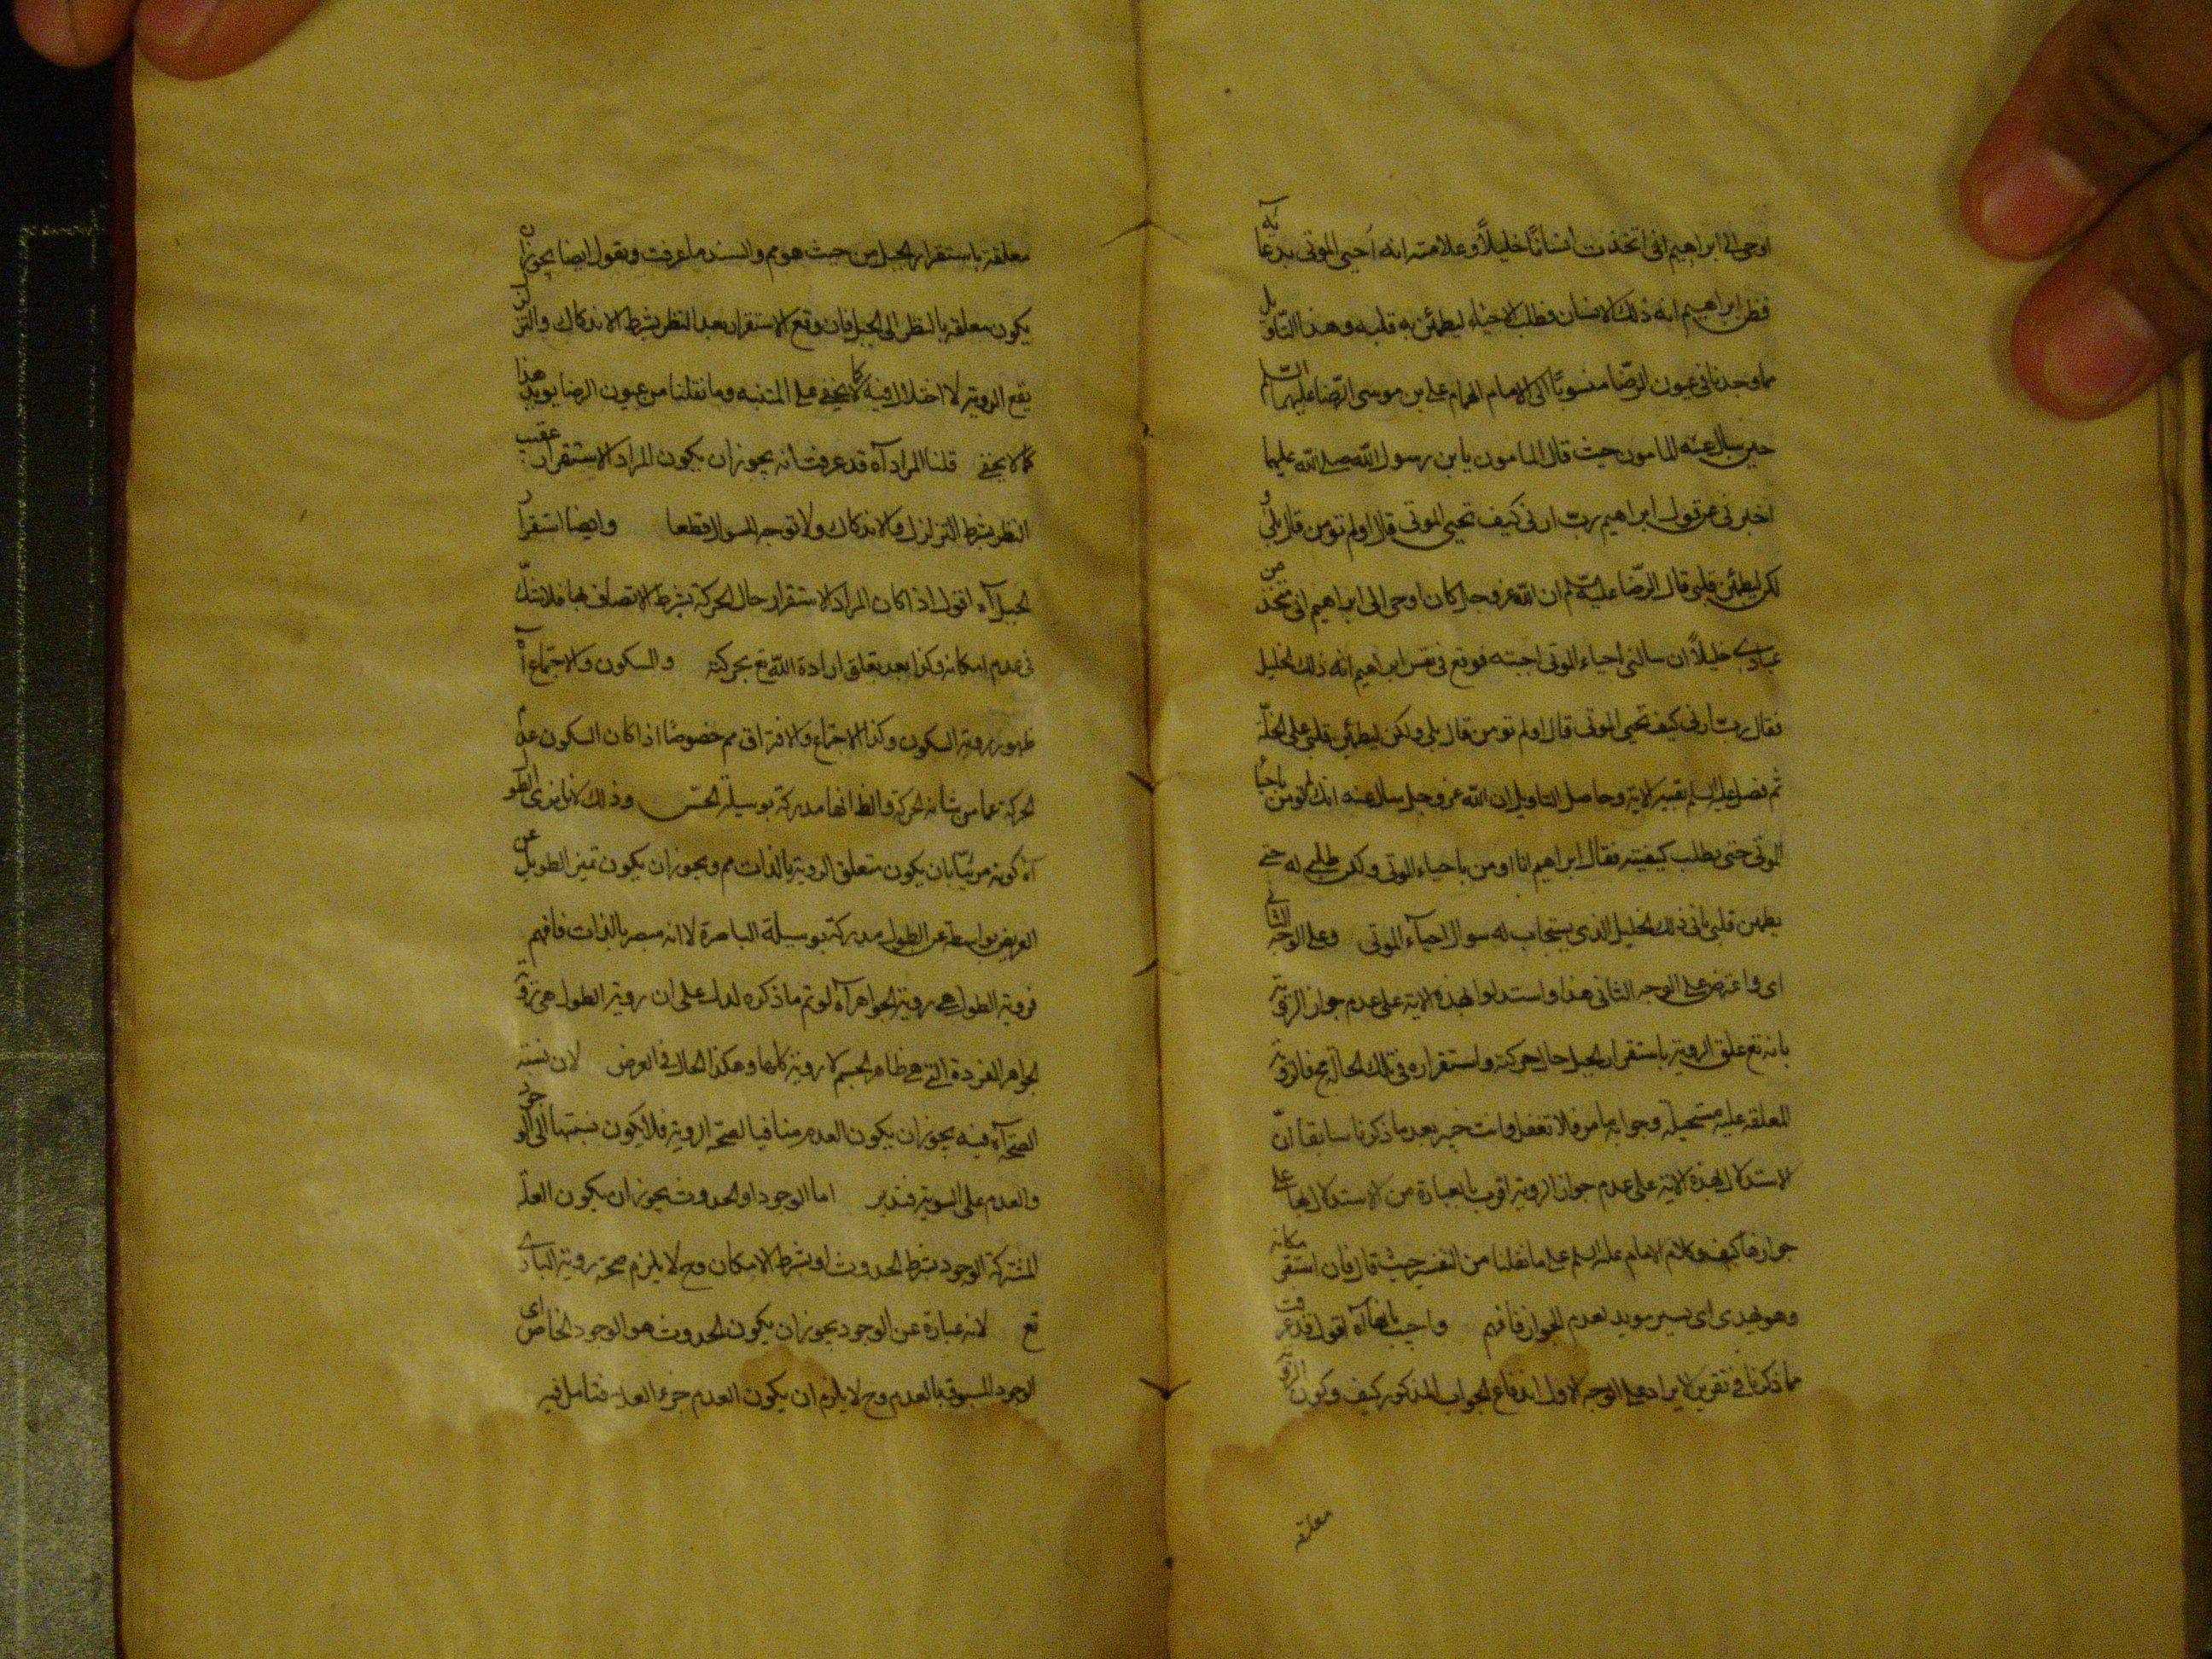 اوحى الى ابراهيم انى اتخذت انسانًا خليلاً وعلامته انه اُحيى الموتى بدعائه
فظن ابراهيم انه ذلك الانسان فطلب الاحياء ليطمئن به قلبه وهذا التاويل
مما وجدنا فى عيون الرضا منسوبًا الى الامام الهمام على بن موسى الرّضا عليهما السّلم
حين سال عنه المامون حيث قال المامون يا بن رسول الله صلى الله عليهما
اخبرنى عن قول ابراهيم ربّ ارنى كيف تحيى الموتى قال اولم تومن قال بلى و
لكن ليطمئن قلبى قال الرّضا عليه السّلم ان الله عز وجل كان اوحى الى ابراهيم انى متخذ من
عبادى خليلاً ان سالنى احياء الموتى اجبته فوقع فى نفس ابراهيم انه ذلك الخليل
فقال ربّ ارنى كيف تحيى الموتى قال اولم تومن قال بلى ولكن ليطمئن قلبى على الخلّة
ثم فصل عليه السلم تفسير الاية وحاصل التاويل ان الله عز وجل سال عنه انك لم تومن باحياء
الموتى حتى يطلب كيفيته فقال ابراهيم انا اومن باحياء الموتى ولكن طلبى له حتى
يطمئن قلبى بانى ذلك الخليل الذى يستجاب له سوال احيآء الموتى وعلى الوجه الثانى
اى واعترض على الوجه الثانى هذا واستدلوا بهذه الاية على عدم جواز الروية
بانه تع علق الروية باستقرار الجبل حال حركته واستقراره فى تلك الحال مح فالروية
المعلقة عليه مستحيلة وجوابه ما مر فلا تغفل وانت خبير بعد ما ذكرنا سابقا انّ
الاستدلال بهذه الاية على عدم جواز الروية اقرب بالعبارة من الاستدلال بها على
جوازها كيف وكلام الامام عليه السلم على ما نقلنا من التفسير حيث قال فان استقر مكانه
وهو يهدى اى يسير مويد لعدم الجواز فافهم واجيب بانها آه اقول قد عرفت
مما ذكرنا فى تقرير الايراد على الوجه الاول اندفاع الجواب المذكور كيف وكون الروية
معلقة
معلقة باستقرار الجبل من حيث هو مم والسند ما عرفت ونقول ايضا يجوز ان
يكون معلقة بالنظر الى الجبل فان وقع الاستقرار بعد النظر بشرط الاندكاك والتزلزل
يقع الروية لا اختلال فيه كما لا يخفى على المتنبه وما نقلنا من عيون الرضا يويد هذا
كما لا يخفى قلنا المراد آه قد عرفت انه يجوز ان يكون المراد الاستقرار عقيب
النظر بشرط التزلزل والاندكاك ولا توجه للسوال قطعا وايضا استقرار
الجبل آه اقول اذا كان المراد الاستقرار حال الحركة بشرط الاتصاف بها فلا شكّ
فى عدم امكانه وكذا بعد تعلق ارادة الله تع بحركته والسكون والاجتماع آه
ظهور روية السكون وكذا الاجتماع والافتراق مم خصوصًا اذا كان السكون عدم
الحركة عما من شانه الحركة والظ انها مدركة بوسيلة الحسّ وذلك لانا نرى الطويل
آه كونه مرئيّا بان يكون متعلق الروية بالذات مم ويجوز ان يكون تميز الطويل عن
العريض بواسطة عرض الطول مدركة بوسيلة الباصرة لا انه مبصر بالذات فافهم
فروية الطول هى روية الجواهر آه لو تم ما ذكره لدل على ان روية الطول هى روية
الجواهر الفردة التى هى ظاهر الجسم لا روية كلها وهكذا الحال فى العرض لان نسبة
الصحة آه فيه يجوز ان يكون العدم منافيا لصحة الروية فلا يكون نسبتها الى الوجود
والعدم على السوية فتدبر اما الوجود او الحدوث يجوز ان يكون العلّة
المشتركة الوجود بشرط الحدوث او بشرط الامكان وح لا يلزم صحة روية البارى
تع لانه عبارة عن الوجود يجوز ان يكون الحدوث هو الوجود الخاص اى
الوجود المسبوق بالعدم وح لا يلزم ان يكون العدم جزء العلة فتامل فيه